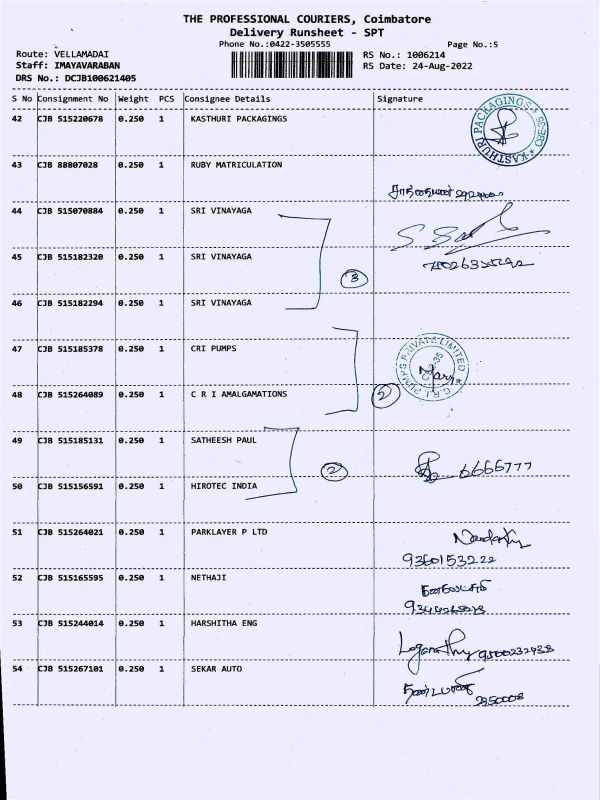 THE PROFESSIONAL COURIERS, Coimbatore
Delivery Runsheet - SPT
Phone No.:0422-3505555 Page No.:5
Route: VELLAMADAI RS No.: 1006214
Staff: IMAYAVARABAN RS Date: 24-Aug-2022
DRS No.: DCJB100621405
S No Consignment No Weight PCS Consignee Details Signature
42 CJB 515220678 0.250 1 KASTHURI PACKAGINGS
KASTHURI PACKAGINGS CBE-35
43 CJB 88807028 0.250 1 RUBY MATRICULATION
44 CJB 515070884 0.250 1 SRI VINAYAGA
45 CJB 515182320 0.250 1 SRI VINAYAGA
3
46 CJB 515182294 0.250 1 SRI VINAYAGA
47 CJB 515185378 0.250 1 CRI PUMPS
C.R.I. PUMPS PRIVATE LIMITED
48 CJB 515264089 0.250 1 C R I AMALGAMATIONS
2
49 CJB 515185131 0.250 1 SATHEESH PAUL
2 6666777
50 CJB 515156591 0.250 1 HIROTEC INDIA
51 CJB 515264021 0.250 1 PARKLAYER P LTD
9360153222
52 CJB 515165595 0.250 1 NETHAJI
53 CJB 515244014 0.250 1 HARSHITHA ENG
Loganathy 9500232938
54 CJB 515267101 0.250 1 SEKAR AUTO